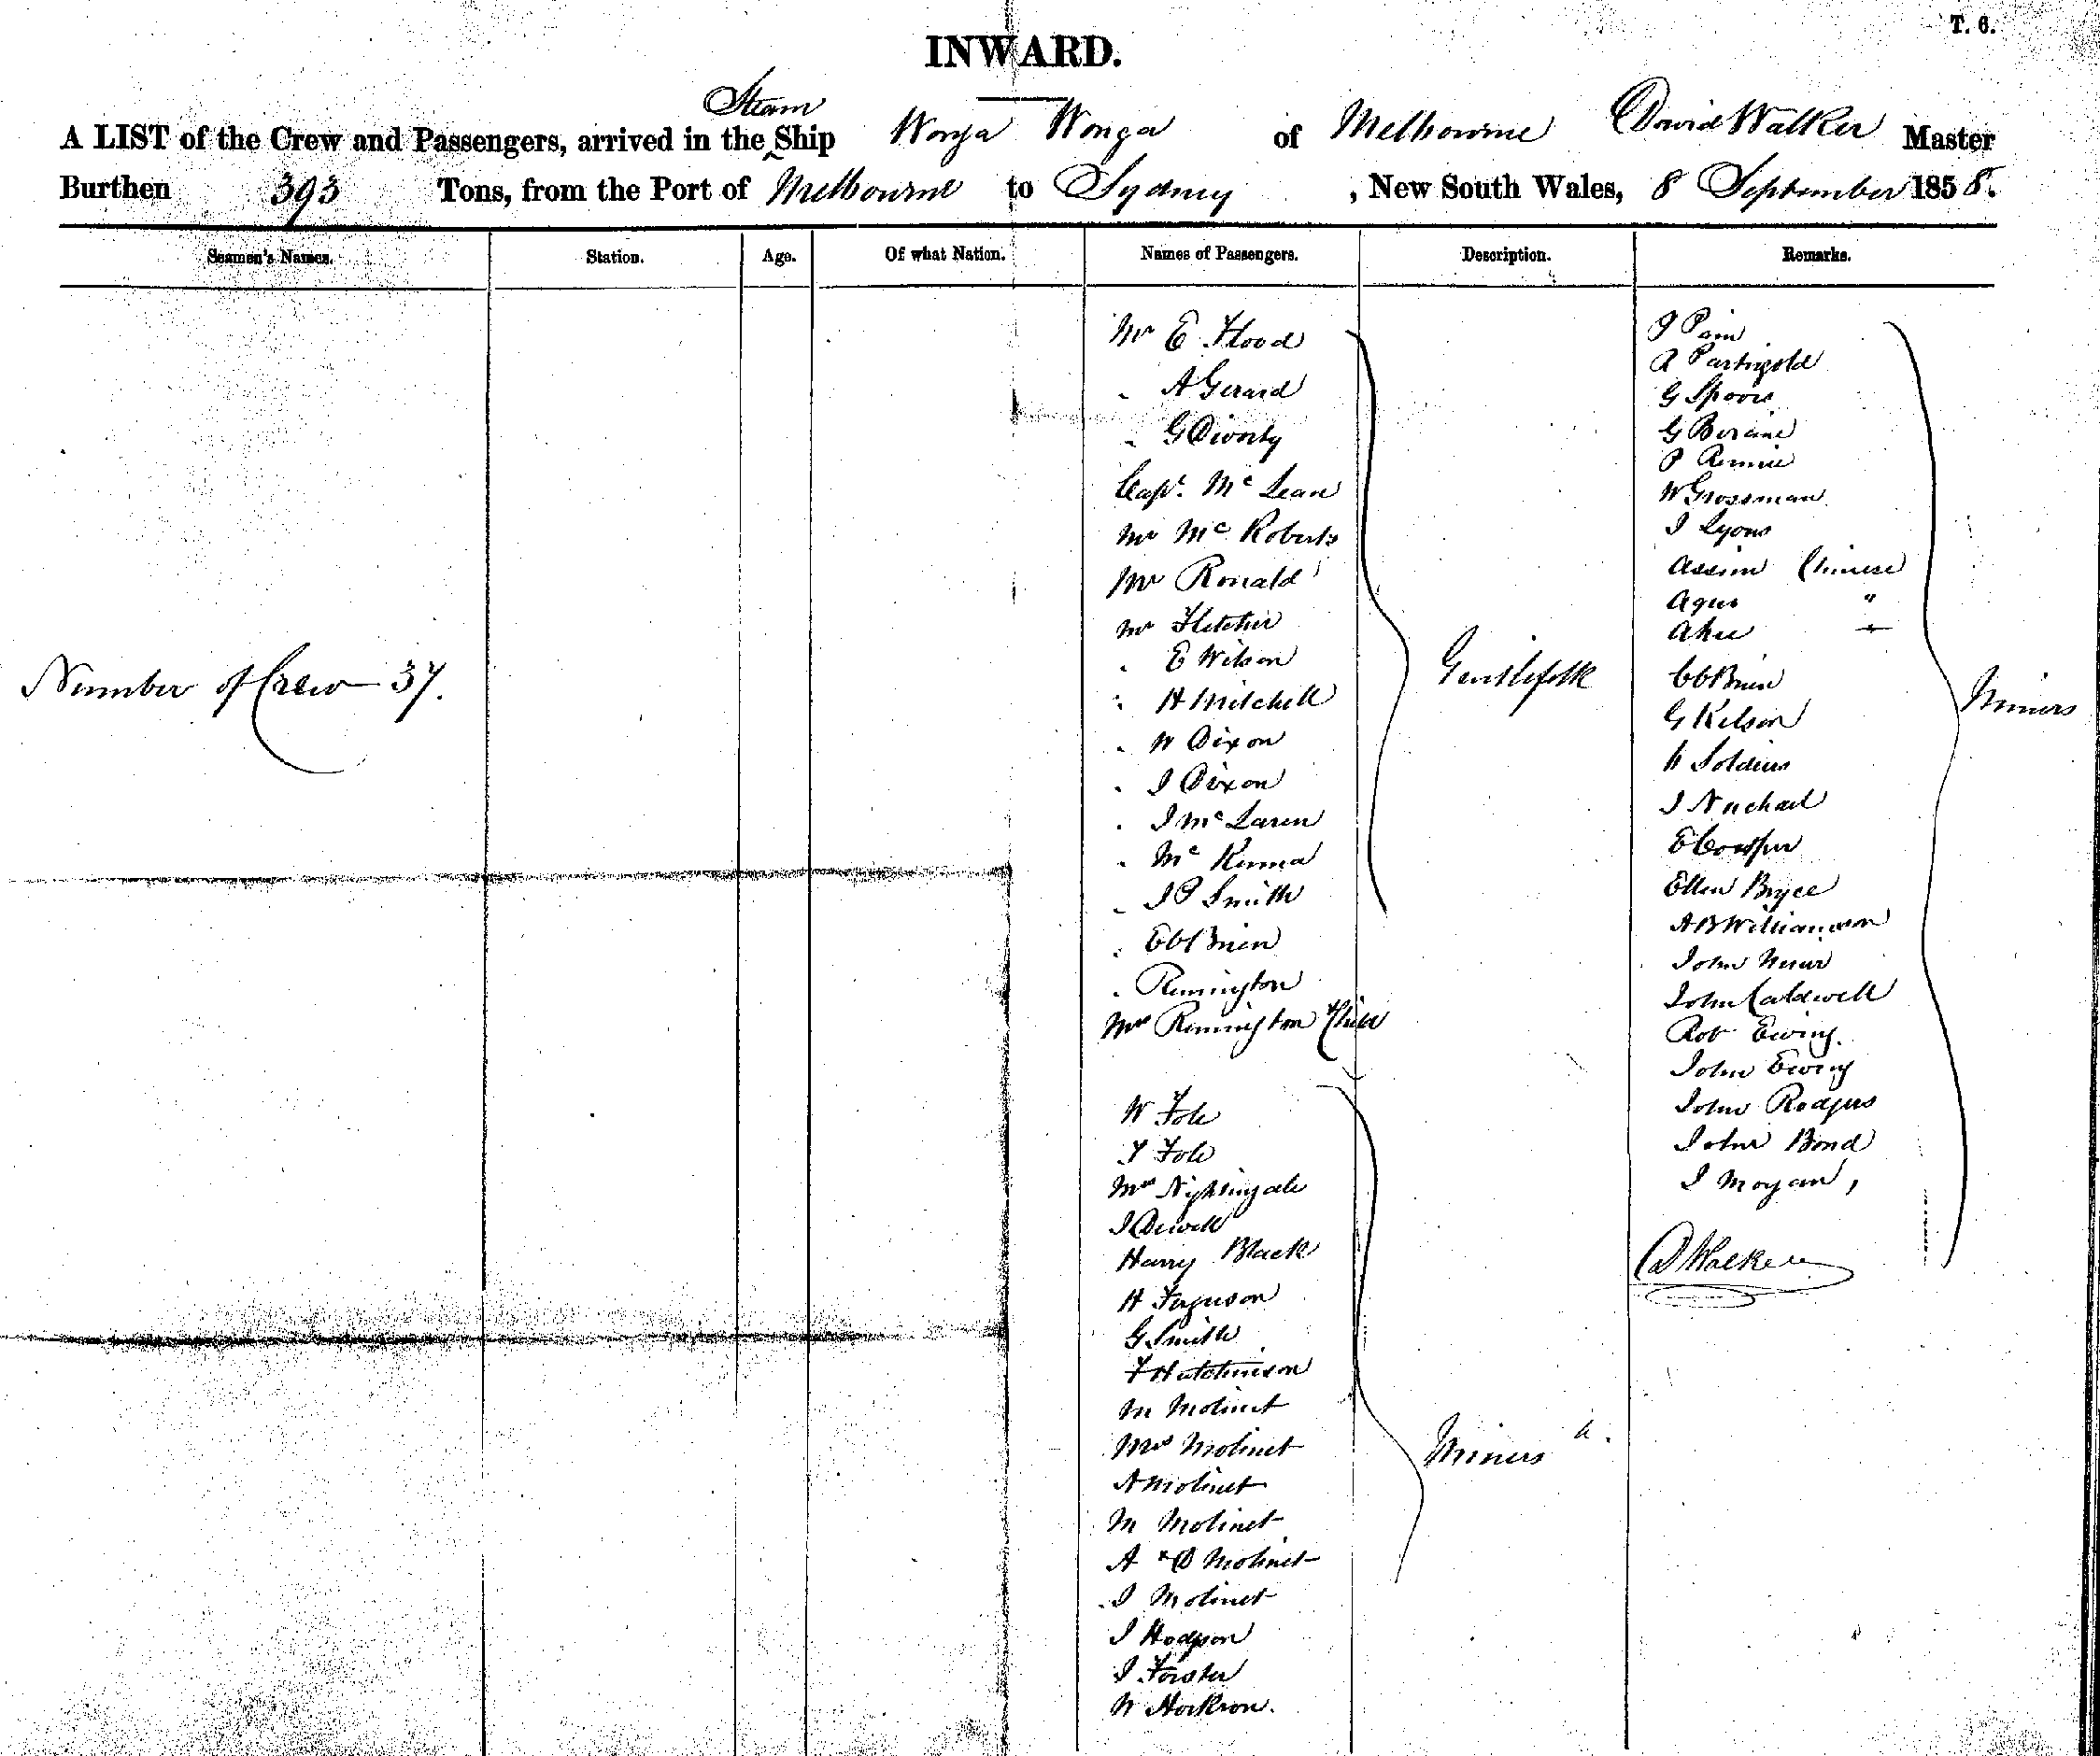 T. 6.
INWARD.
A LIST of the Crew and Passengers, arrived in the Steam Ship Wonga Wonga of Melbourne David Walker Master
Burthen 393 Tons, from the Port of Melbourne to Sydney, New South Wales, 8 September 1858.
Seamen's Names. Station. Age. Of what Nation. Names of Passengers. Description. Remarks.
Number of Crew 37.
Mr E Flood
" A Gerard
" G
Capt. Mc Lean
Mr Mc Roberts
Mr Ronald
Mr Fletcher
" E Wilson
" H Mitchell
" W Dixon
" J Dixon
" J Mc Laren
" Mc Kenna
" J P Smith
" E O'Brien
" Remington
Mrs Remington & Child
Gentlefolk
W Fole
F Fole
Mrs Nightingale
J
Harry Black
H Ferguson
G Smith
F Hutchinson
M Molinet
Mrs Molinet
A Molinet
M Molinet
A & D Molinet
J Molinet
J Hodgson
J Forster
W
Miners
J Pain
A Partrigold
G
G
P Rennie
W Grossman
J Lyons
Assim Chinese
Aque "
Ahee "
C O'Brien
G Kelson
H Soldiers
J
E Cowper
Ellen Bryce
A B Williamson
John Muir
John Caldwell
Rob Ewing.
John Ewing
John Rodgers
John Bond
J Mogan,
Miners
D Walker